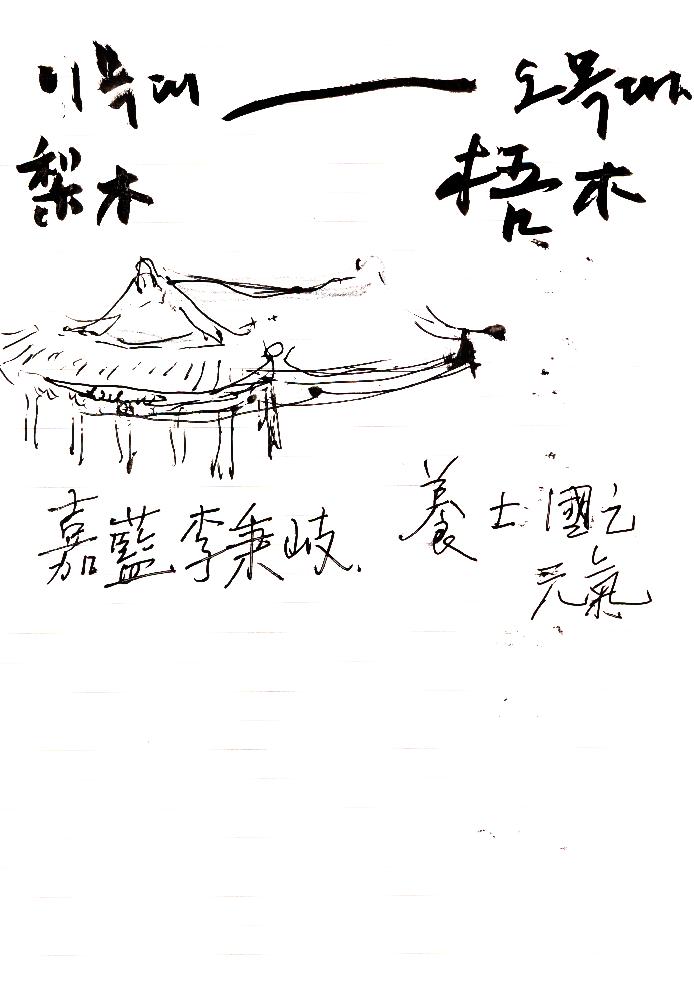 이목대 — 오목대
梨木 梧木
嘉藍 李秉岐. 養士國之
元氣